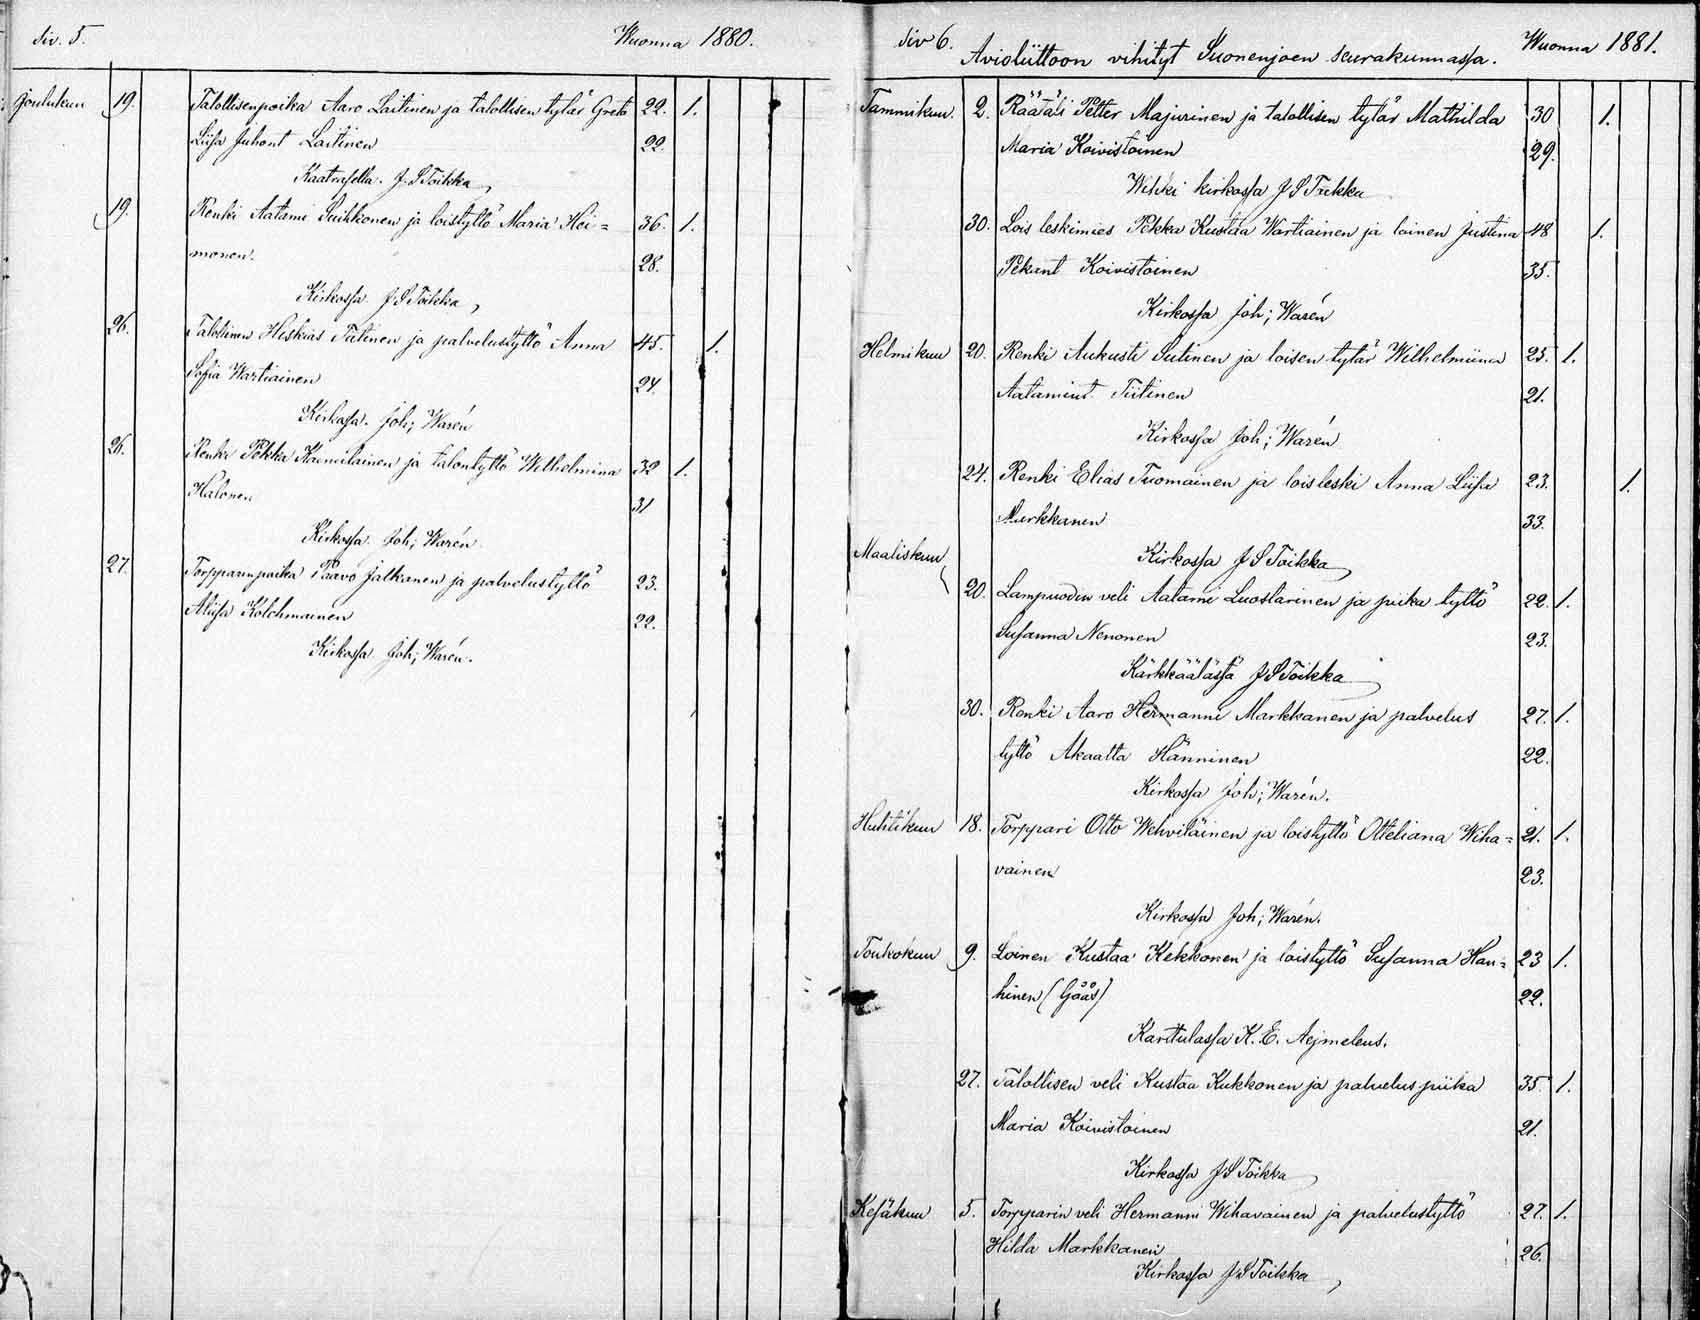 Siv. 5. Wuonna 1880.
Joulukuu 19. Talollisenpoika Aaro Laitinen ja talollisen tytär Greta 22. 1.
Liisa Juhont. Laitinen 22.
J. S Toikka
19. Renki Aatami Suihkonen ja loistyttö Maria Hei= 36. 1.
monen. 28.
Kirkossa J S Toikka
26. Talollinen Heskias Tiitinen ja palvelustyttö Anna 45. 1.
Sofia Wartiainen 24.
Kirkossa. Joh; Warén
26. Renki Pekka ja talontyttö Wilhelmina 32 1.
Halonen 31
Kirkossa Joh; Warén
27. Torpparinpoika Paavo Jalkanen ja palvelustyttö 23.
Aliisa Kolehmainen 22.
Kirkossa Joh; Warén.
Siv 6. Avioliittoon vihityt Suonenjoen seurakunnassa. Wuonna 1881.
Tammikuu. 2. Räätäli Petter Majurinen ja talollisen tytär Mathilda 30 1.
Maria Koivistoinen 29.
Wihki kirkossa J S Toikka
30. Lois leskimies Pekka Kustaa Wartiainen ja loinen Justina 48 1.
Pekant Koivistoinen 35.
Kirkossa Joh; Warén
Helmikuu 20. Renki Aukusti Sutinen ja loisen tytär Wilhelmiina 25. 1.
Aatamint. Tiitinen 21.
Kirkossa Joh; Warén
24. Renki Elias Tuomainen ja lois leski Anna Liisa 23. 1.
Markkanen 33.
Maaliskuu Kirkossa J S Toikka
20. Lampuodin veli Aatami Luostarinen ja piika tyttö 22. 1.
Susanna Nenonen 23.
Kärkkäälässä J S Toikka
30. Renki Aaro Hermanni Markkanen ja palvelus 27. 1.
tyttö Akaatta Hänninen 22.
Kirkossa Joh; Warén.
Huhtikuu 18. Torppari Otto Wehviläinen ja loistyttö Otteliana Wiha= 21. 1.
vainen 23.
Kirkossa Joh; Warén.
Toukokuu 9. Loinen Kustaa Kekkonen ja loistyttö Susanna Han= 23 1.
hinen (Gåås) 22.
Karttulassa K. E. Aejmeleus.
27. Talollisen veli Kustaa Kukkonen ja palveluspiika 35. 1.
Maria Koivistoinen 21.
Kirkossa J S Toikka
Kesäkuu 5. Torpparin veli Hermanni Wihavainen ja palvelustyttö 27. 1.
Hilda Markkanen 26.
Kirkossa J S Toikka